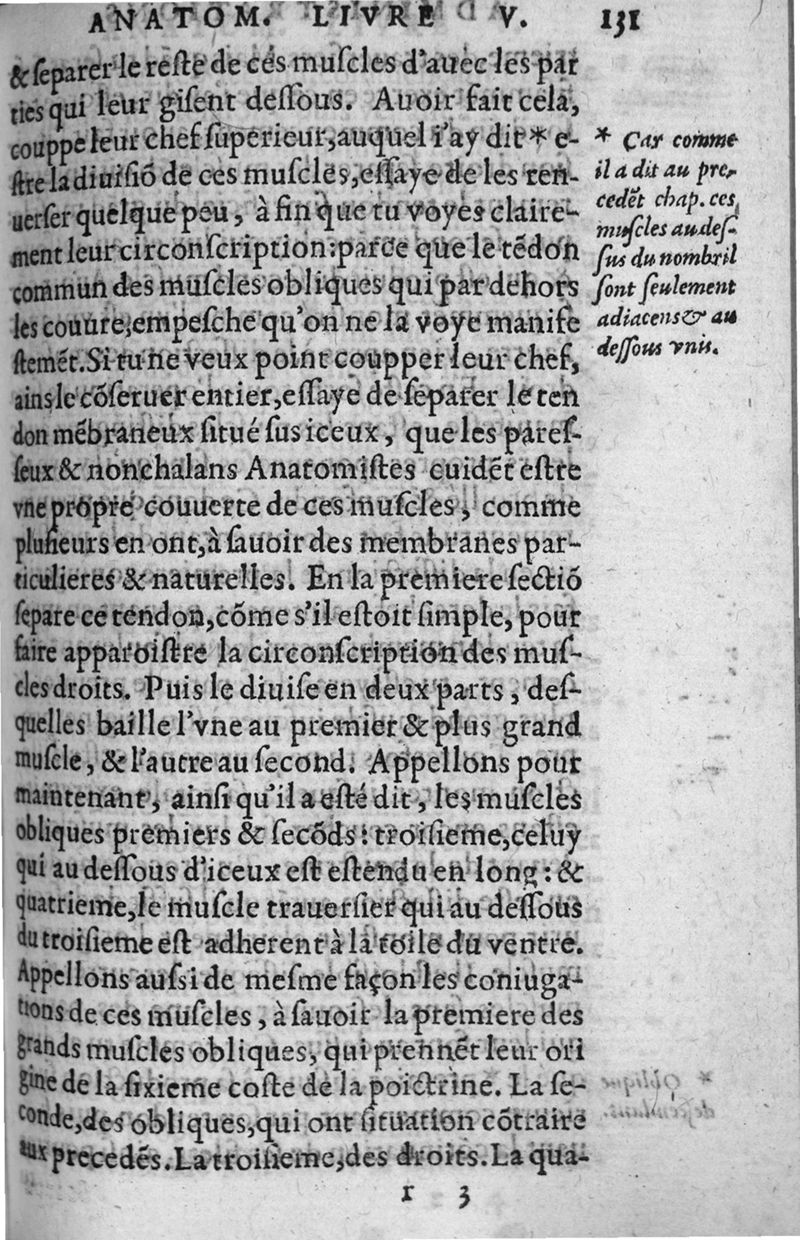 ANATOM. LIVRE V. 131
& ſeparer le reſte de ces muſcles d'auec les par
ties qui leur giſent deſſous. Auoir fait cela,
couppe leur chef ſuperieur, auquel i'ay dit * e-
ſtre la diuiſiõ de ces muſcles, eſſaye de les ren-
uerſer quelque peu, à fin que tu voyes claire-
ment leur circonſcription: parce que le tẽdon
commun des muſcles obliques qui par dehors
les couure, empeſche qu'on ne la voye manife
ſtemẽt. Si tu ne veux point coupper leur chef,
ains le cõſeruer entier, eſſaye de ſeparer le ten
don mẽbraneux ſitué ſus iceux, que les pareſ-
ſeux & nonchalans Anatomiſtes cuidẽt eſtre
vne propre couuerte de ces muſcles, comme
pluſieurs en ont, à ſauoir des membranes par-
ticulieres & naturelles. En la premiere ſectiõ
ſepare ce tendon, cõme s'il eſtoit ſimple, pour
faire apparoiſtre la circonſcription des muſ-
cles droits. Puis le diuiſe en deux parts, deſ-
quelles baille l'vne au premier & plus grand
muſcle, & l'autre au ſecond. Appellons pour
maintenant, ainſi qu'il a eſté dit, les muſcles
obliques premiers & ſecõds: troiſieme, celuy
qui au deſſous d'iceux eſt eſtendu en long: &
quatrieme, le muſcle trauerſier qui au deſſous
du troiſieme eſt adherent à la toile du ventre.
Appellons auſsi de meſme façon les coniuga-
tions de ces muſcles, à ſauoir la premiere des
grands muſcles obliques, qui prennẽt leur ori
gine de la ſixieme coſte de la poictrine. La ſe-
conde, des obliques, qui ont ſituation cõtraire
aux precedẽs. La troiſieme, des droits. La qua-
r 3
* Car comme
il a dit au pre-
cedẽt chap. ces
muſcles au deſ-
ſus du nombril
ſont ſeulement
adiacens & au
deſſous vnis.